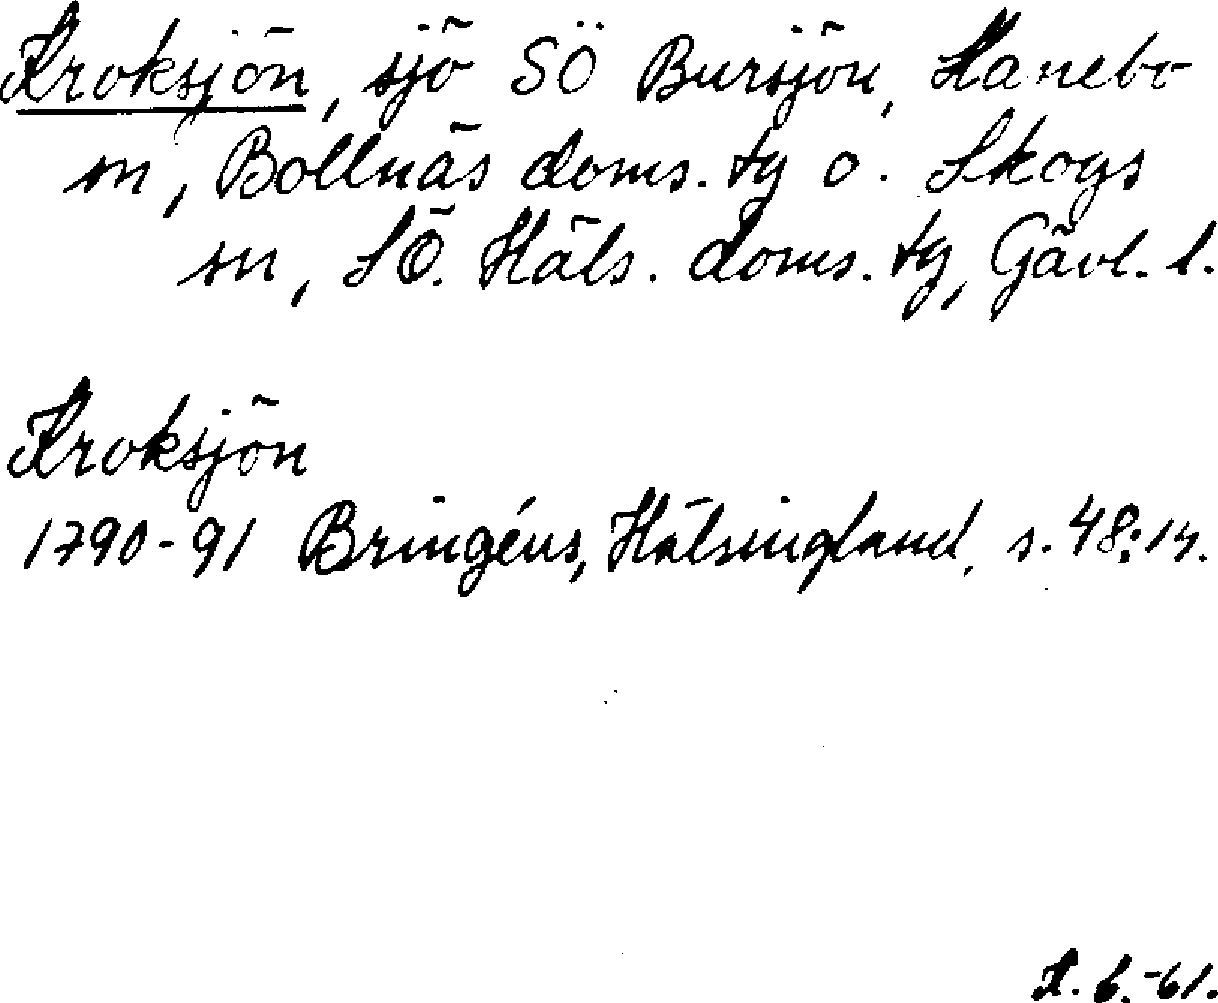 Kroksjön, sjö SÖ Bursjön, Hanebo
sn, Bollnäs doms. tg o. Skogs
sn, SÖ. Häls. doms. tg, Gävl. l.
Kroksjön
1790-91 Bringéus, Hälsingland, s. 48:14.
K. b. -61.